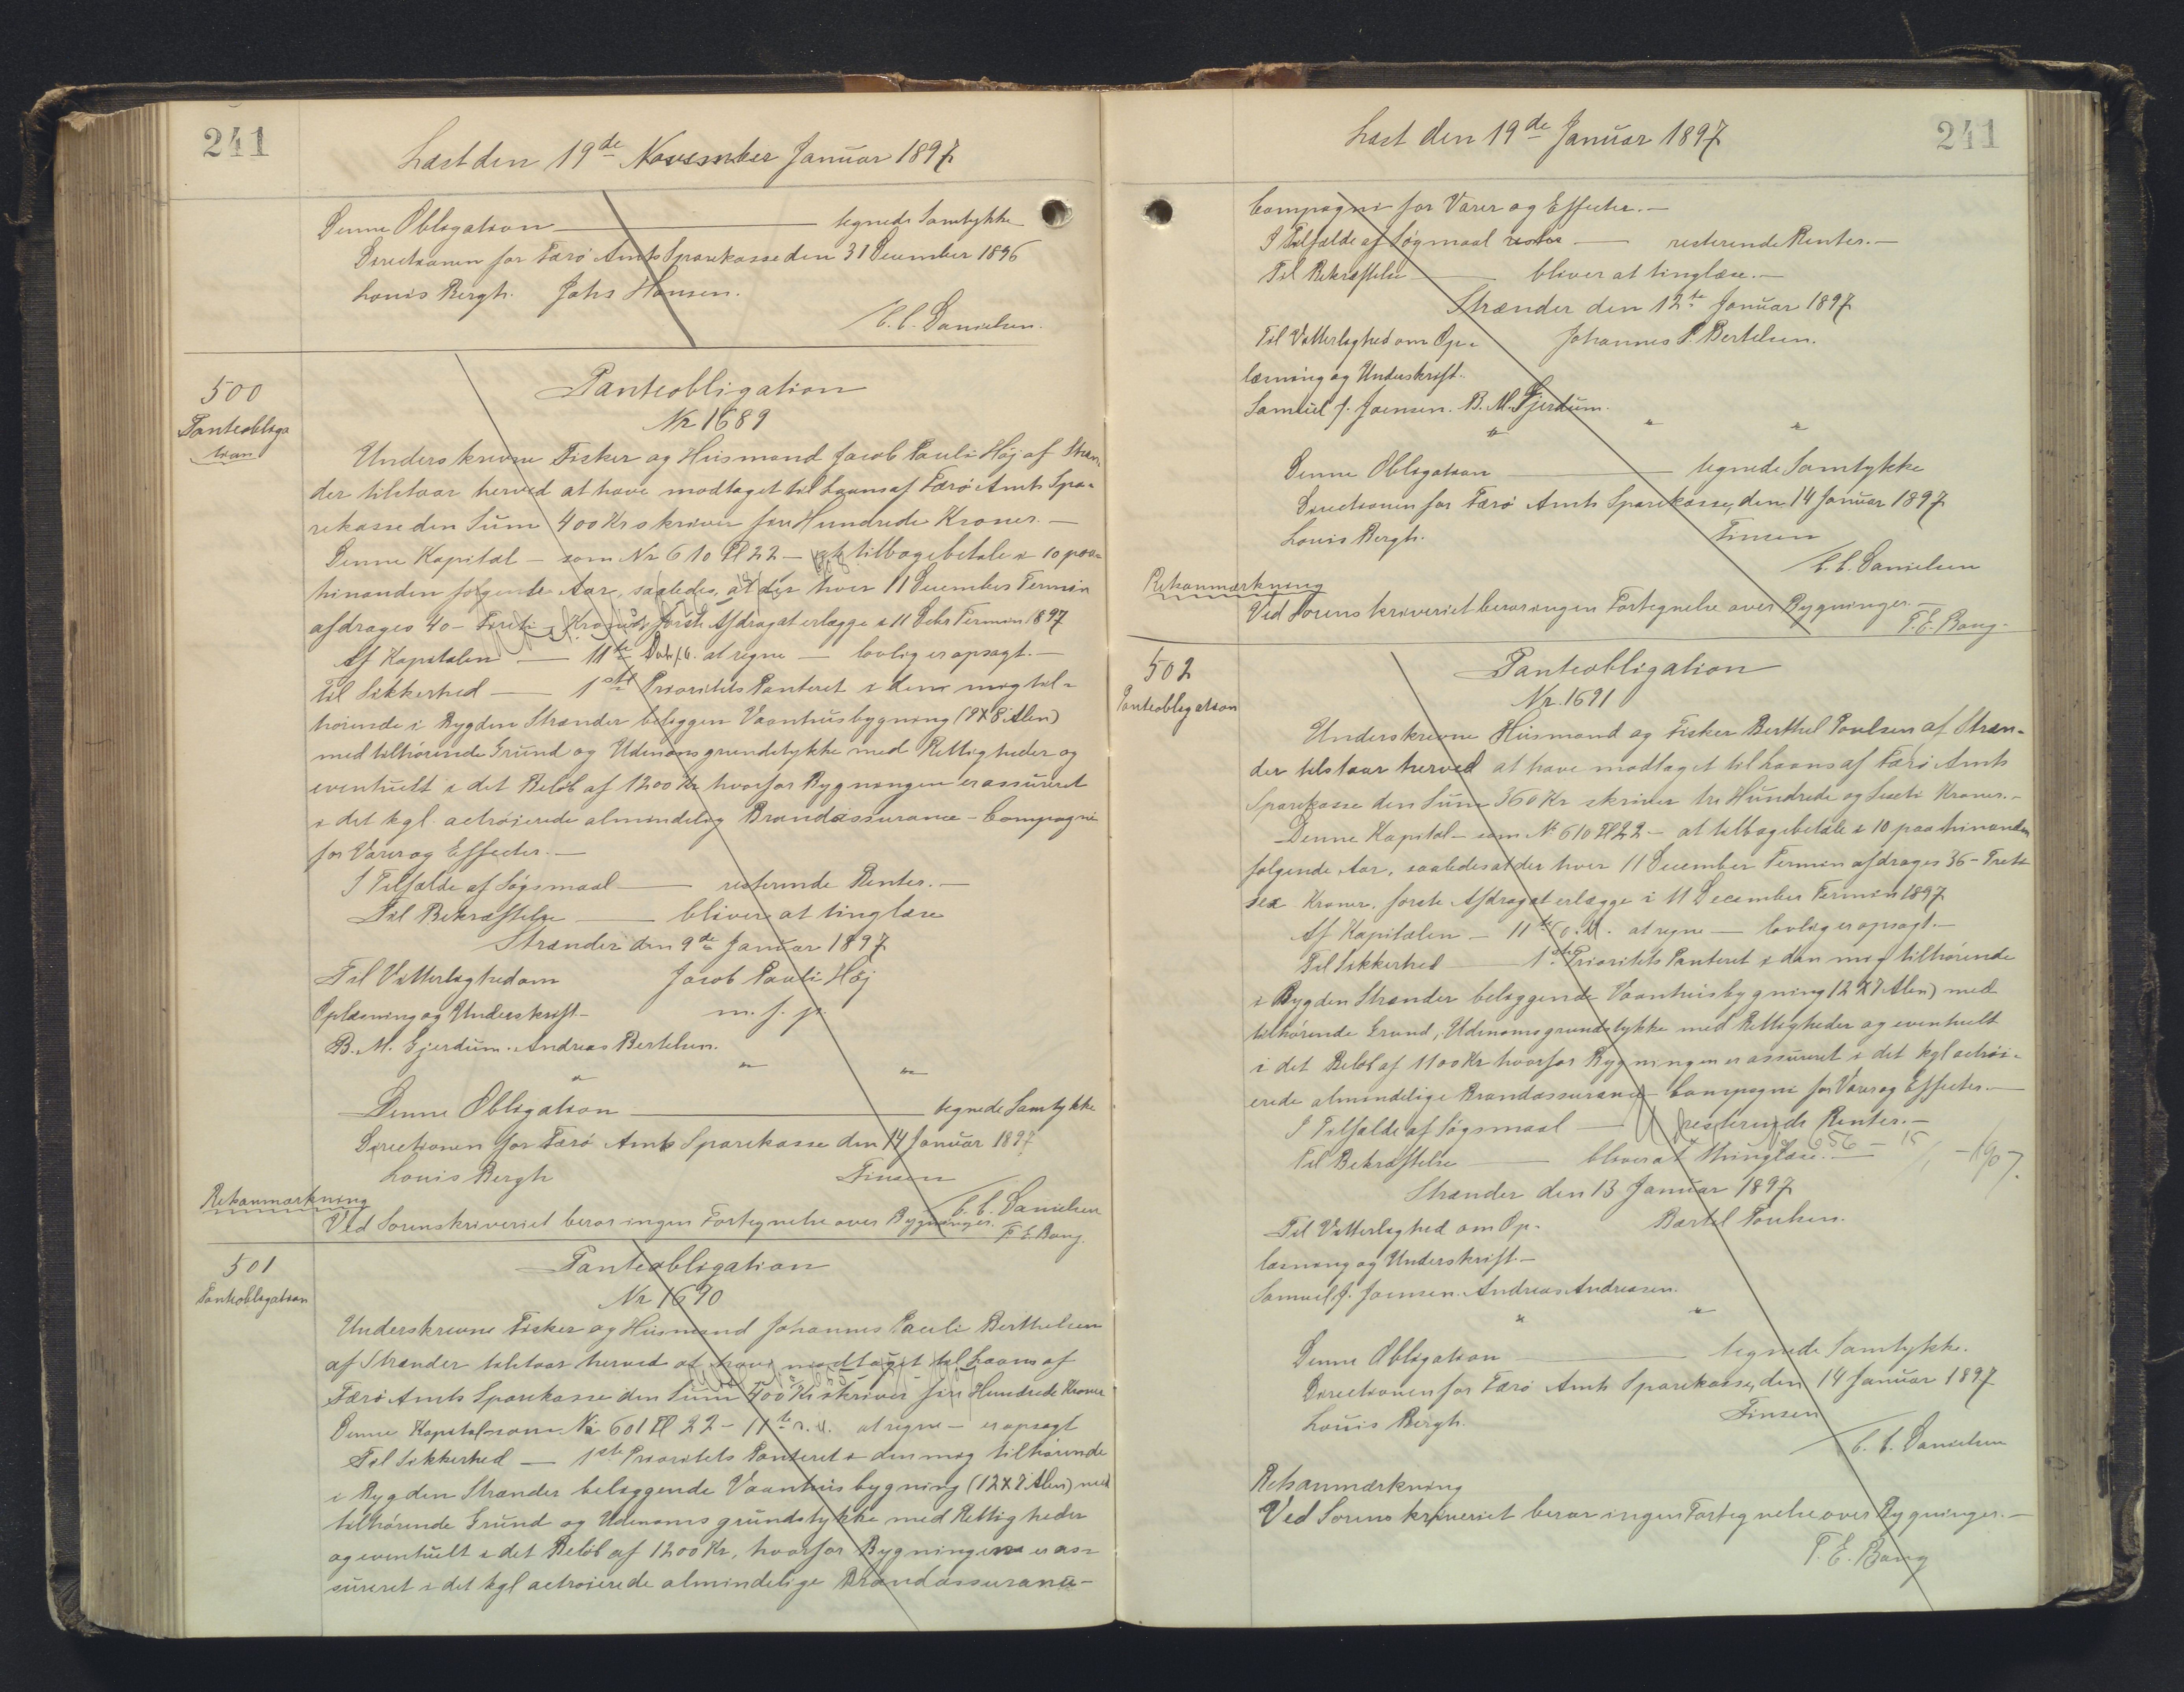 241
Læst den 19de November Januar 1897
Denne Obligation — tegnede Samtykke
Directionen for Færø Amts Sparekasse den 31 December 1896
Louis Bergh. Johs Hansen.
C. C. Danielsen.
500
Panteobliga
tion
Panteobligation
Nr 1689
Underskrevne Fisker og Husmand Jacob Pauli Høj af Stræn-
der tilstaar herved at have modtaget til Laans af Færø Amts Spa-
rekasse den Sum 400 Kr skriver fire Hundrede Kroner. —
Denne Kapital — som Nr 610 Pl 22 — at tilbagebetale i 10 paa-
hinanden følgende Aar, saaledes, at der hver 11 December Termin
afdrages 40 – Firti – Kroner, første Afdrag at erlægge i 11 Decbr Termin 1897
Af Kapitalen — 11te at regne — lovlig er opsagt. —
Til Sikkerhed — 1ste Prioritets Panteret i den mig til-
hørende i Bygden Strænder beliggen Vaanhusbygning (9X8 Alen)
med tilhørende Grund og Udenomsgrundstykke med Rettigheder og
eventuelt i det Beløb af 1200 Kr hvorfor Bygningen er assureret
i det kgl. actroierede almindelig Brandassurance – Compagni
for Varer og Effecter. —
I Tilfælde af Søgsmaal — resterende Renter. —
Til Bekræftelse — bliver at tinglæse
Strænder den 9de Januar 1897
Til Vitterlighed om Jacob Pauli Høj
Oplæsning og Underskrift. – m. f. p.
B. M. Gjerdum. Andreas Bertelsen.
" " "
Denne Obligation — tegnede Samtykke
Directionen for Færø Amts Sparekasse den 14 Januar 1897
Louis Bergh Finsen
C. C. Danielsen
Retsanmærkning
Ved Sorenskriveriet beror ingen Fortegnelse over Bygninger. F. E. Bang.
501
Panteobligation
Panteobligation
Nr 1690
Underskrevne Fisker og Husmand Johannes Pauli Berthelsen
af Strænder tilstaar herved at have modtaget til Laans af
Færø Amts Sparekasse den Sum 400 Kr skriver fire Hundrede Kroner
Denne Kapital som Nr 601 Pl 22 – 11te at regne — er opsagt
Til Sikkerhed — 1ste Prioritets Panteret i den mig tilhørende
i Bygden Strænder beliggende Vaanhusbygning (12X7 Alen) med
tilhørende Grund og Udenoms grundstykke med Rettigheder
og eventuelt i det Beløb af 1200 Kr, hvorfor Bygningen er as-
sureret i det kgl actroierede almindelige Brandassurance-
241
Læst den 19de Januar 1897
Compagni for Varer og Effecter. —
I Tilfælde af Søgmaal — resterende Renter. —
Til Bekræftelse — bliver at tinglæse. —
Strænder den 12te Januar 1897
Til Vitterlighed om Op- Johannes P. Bertelsen.
læsning og Underskrift.
Samuel J. Joensen. B. M. Gjerdum.
" " "
Denne Obligation — tegnede Samtykke
Directionen for Færø Amts Sparekasse, den 14 Januar 1897
Louis Bergh. Finsen
C. C. Danielsen
Retsanmærkning
Ved Sorenskriveriet beror ingen Fortegnelse over Bygninger.
F. E. Bang.
502
Panteobligation
Panteobligation
Nr. 1691
Underskrevne Husmand og Fisker Berthel Poulsen af Stræn-
der tilstaar herved at have modtaget til Laans af Færø Amts
Sparekasse den Sum 360 Kr skriver tre Hundrede og Sexti Kroner. –
Denne Kapital – som No 610 Pl 22 – at tilbagebetale i 10 paa hinanden
følgende Aar, saaledes at der hver 11 December Termin afdrages 36 – Tretti
sex Kroner. første Afdrag at erlægge i 11 December Termin 1897
Af Kapitalen — 11te at regne — lovlig er opsagt. —
Til Sikkerhed — 1ste Prioritets Panteret i den mig tilhørende
i Bygden Strænder beliggende Vaanhusbygning 12X7 Alen) med
tilhørende Grund, Udenomsgrundstykke med Rettigheder og eventuelt
i det Beløb af 1100 Kr hvorfor Bygningen er assureret i det kgl actroi-
erede almindelige Brandassurance – Compagni for Varer og Effecter. —
I Tilfælde af Søgsmaal — resterende Renter. —
Til Bekræftelse — bliver at thinglæse. — 656 – 15/1 – 1907.
Strænder den 13 Januar 1897
Til Vitterlighed om Op- Bærtel Poulsen.
læsning og Underskrift. —
Samuel J. Joensen. Andreas Andreasen.
" "
Denne Obligation — tegnede Samtykke.
Directionen for Færø Amts Sparekasse, den 14 Januar 1897
Louis Bergh. Finsen
C. C. Danielsen
Retsanmærkning
Ved Sorenskriveriet beror ingen Fortegnelse over Bygninger. —
F. E. Bang